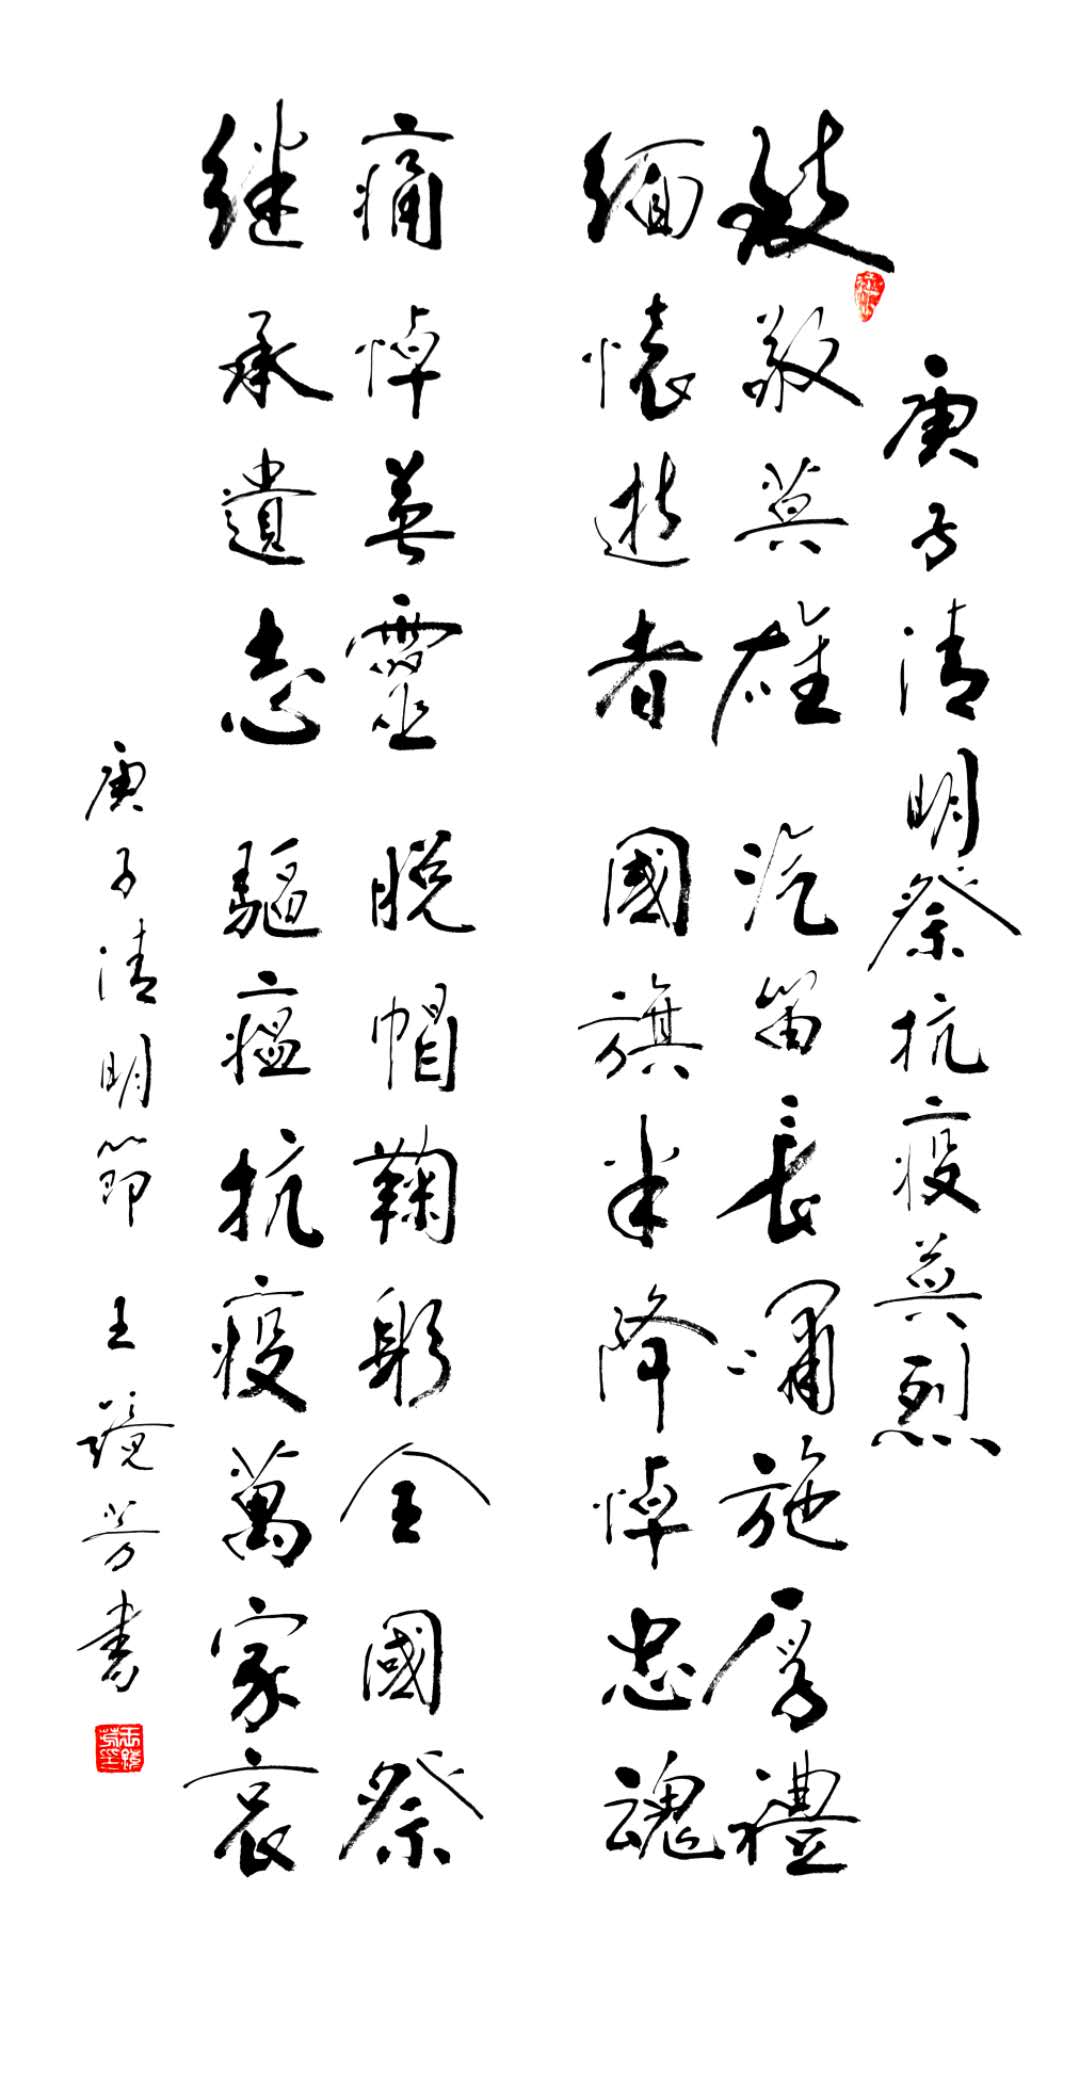 庚子清明祭抗疫英烈
致敬英雄 汽笛長嘯施厚禮
緬懷逝者 國旗半降悼忠魂
痛悼善靈 脱帽鞠躬全國祭
继承遺志 驅瘟抗疫萬家哀
庚子清明節 王鏡芳書